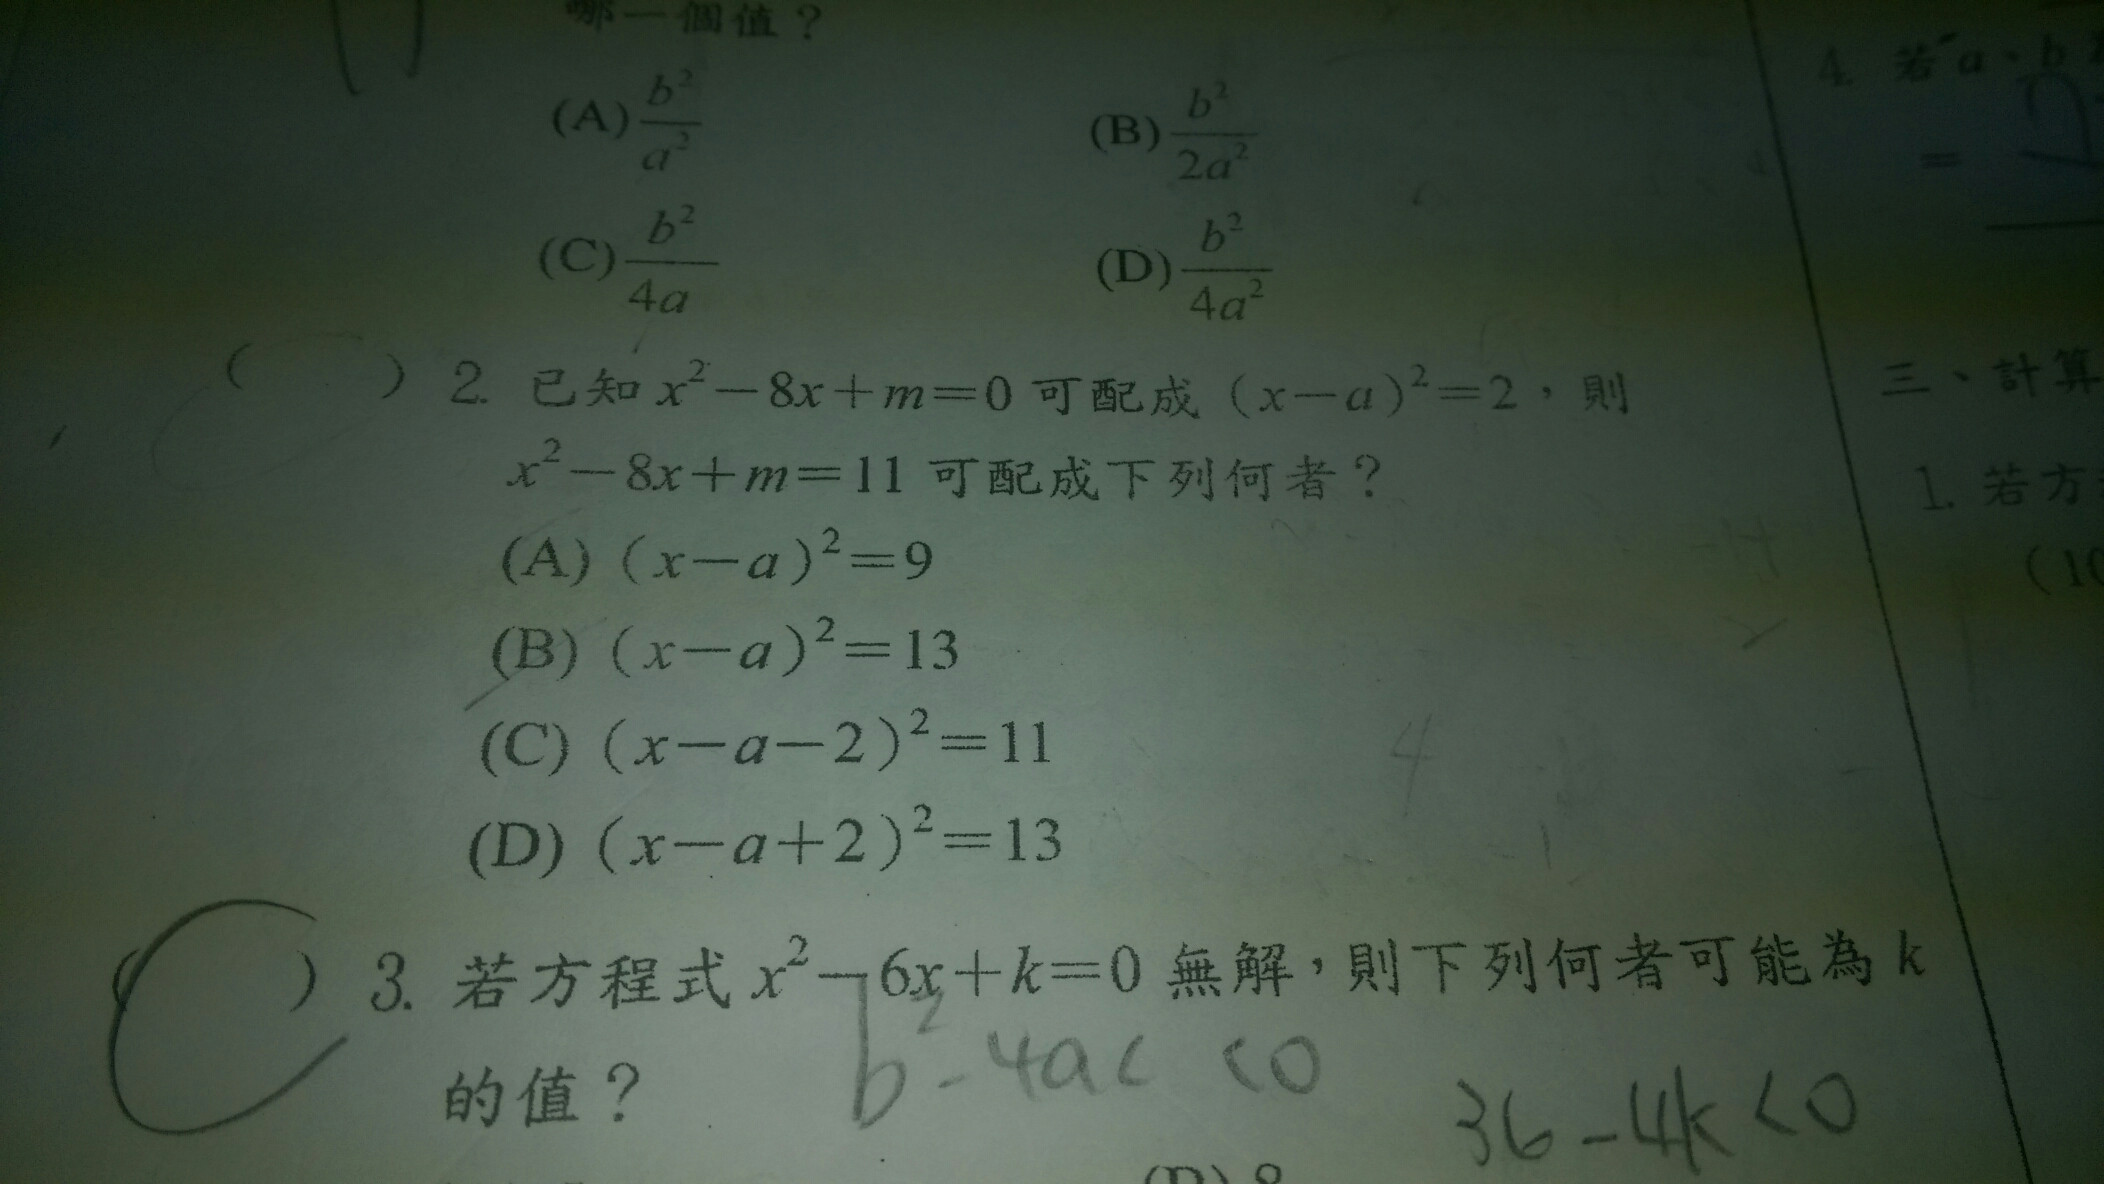 哪一個值？
(A) b²/a² (B) b²/2a²
(C) b²/4a (D) b²/4a²
( ) 2. 已知 x²－8x＋m＝0 可配成（x－a）²＝2，則
x²－8x＋m＝11 可配成下列何者？
(A)（x－a）²＝9
(B)（x－a）²＝13
(C)（x－a－2）²＝11
(D)（x－a＋2）²＝13
( ) 3. 若方程式 x²－6x＋k＝0 無解，則下列何者可能為 k
的值？
b²-4ac <0
36-4k<0
4
4. 若 a、b
=
三、計算
1. 若方
(10